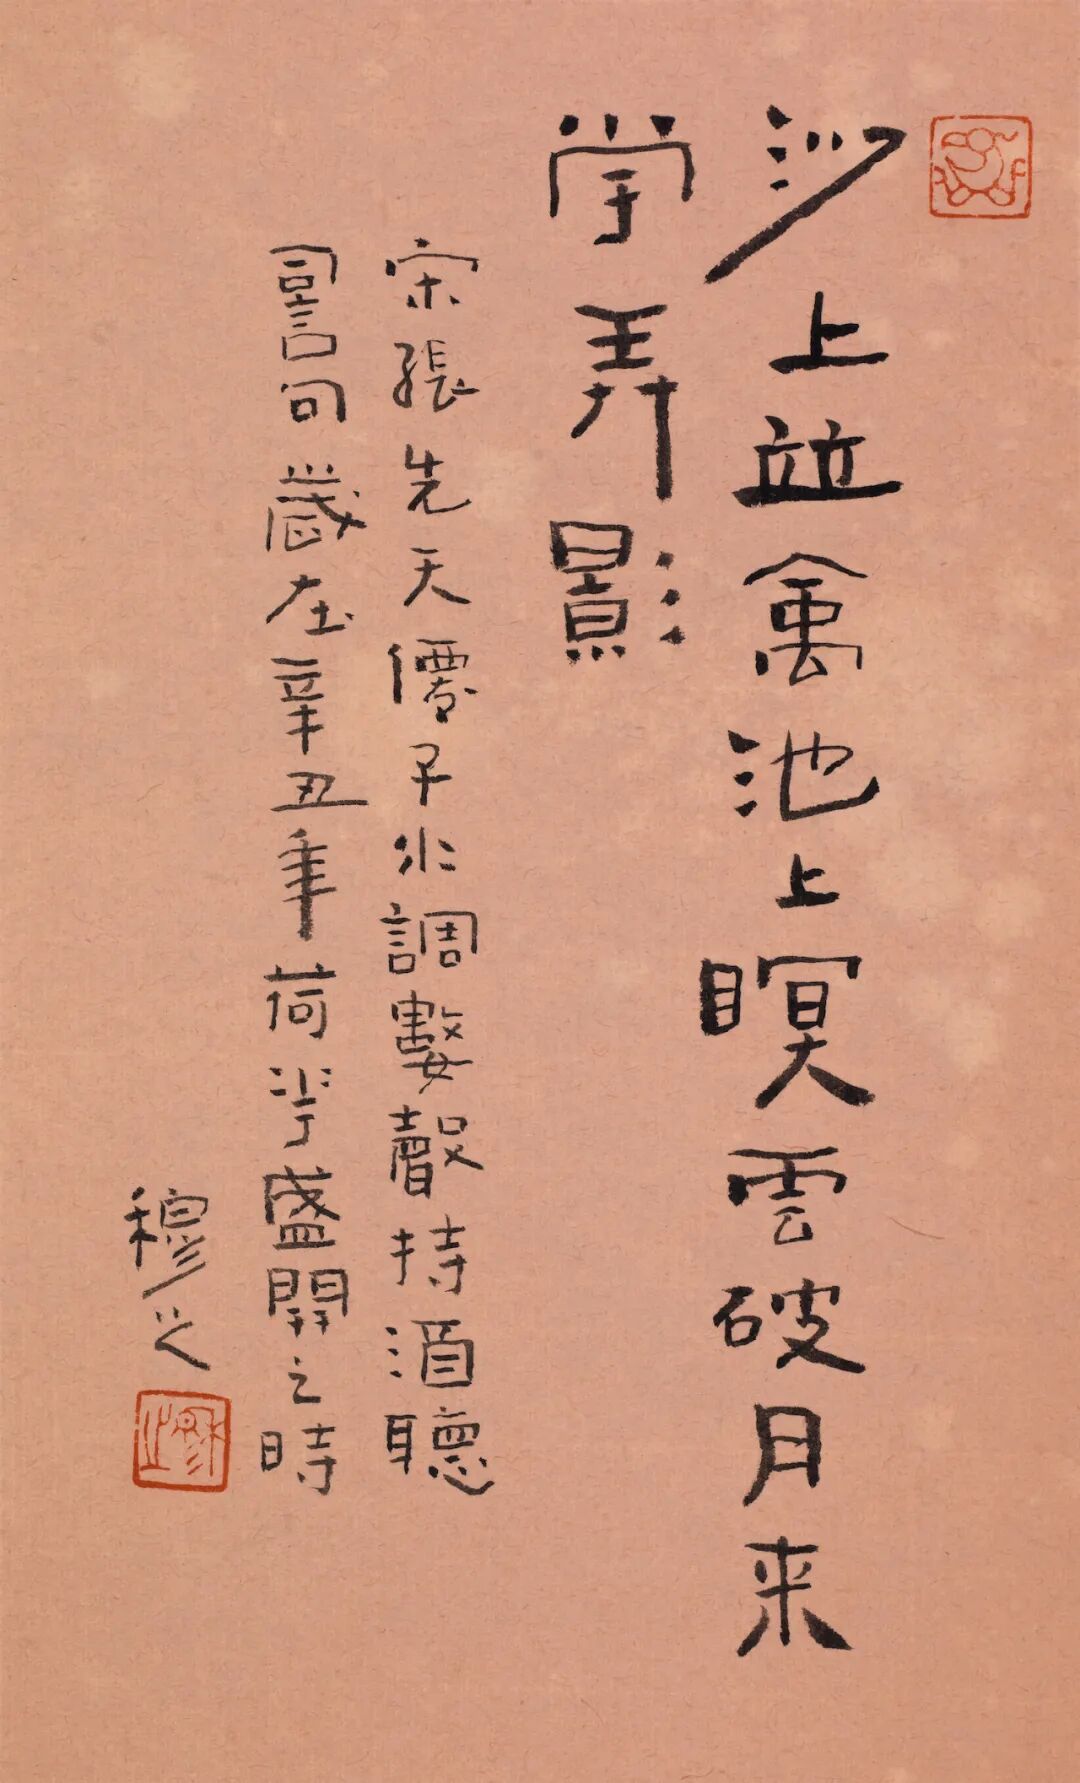 沙上並禽池上瞑雲破月来
花弄影
宋張先天僊子水調數聲持酒聽
詞句歲在辛丑年荷花盛開之時
穆之
穆之